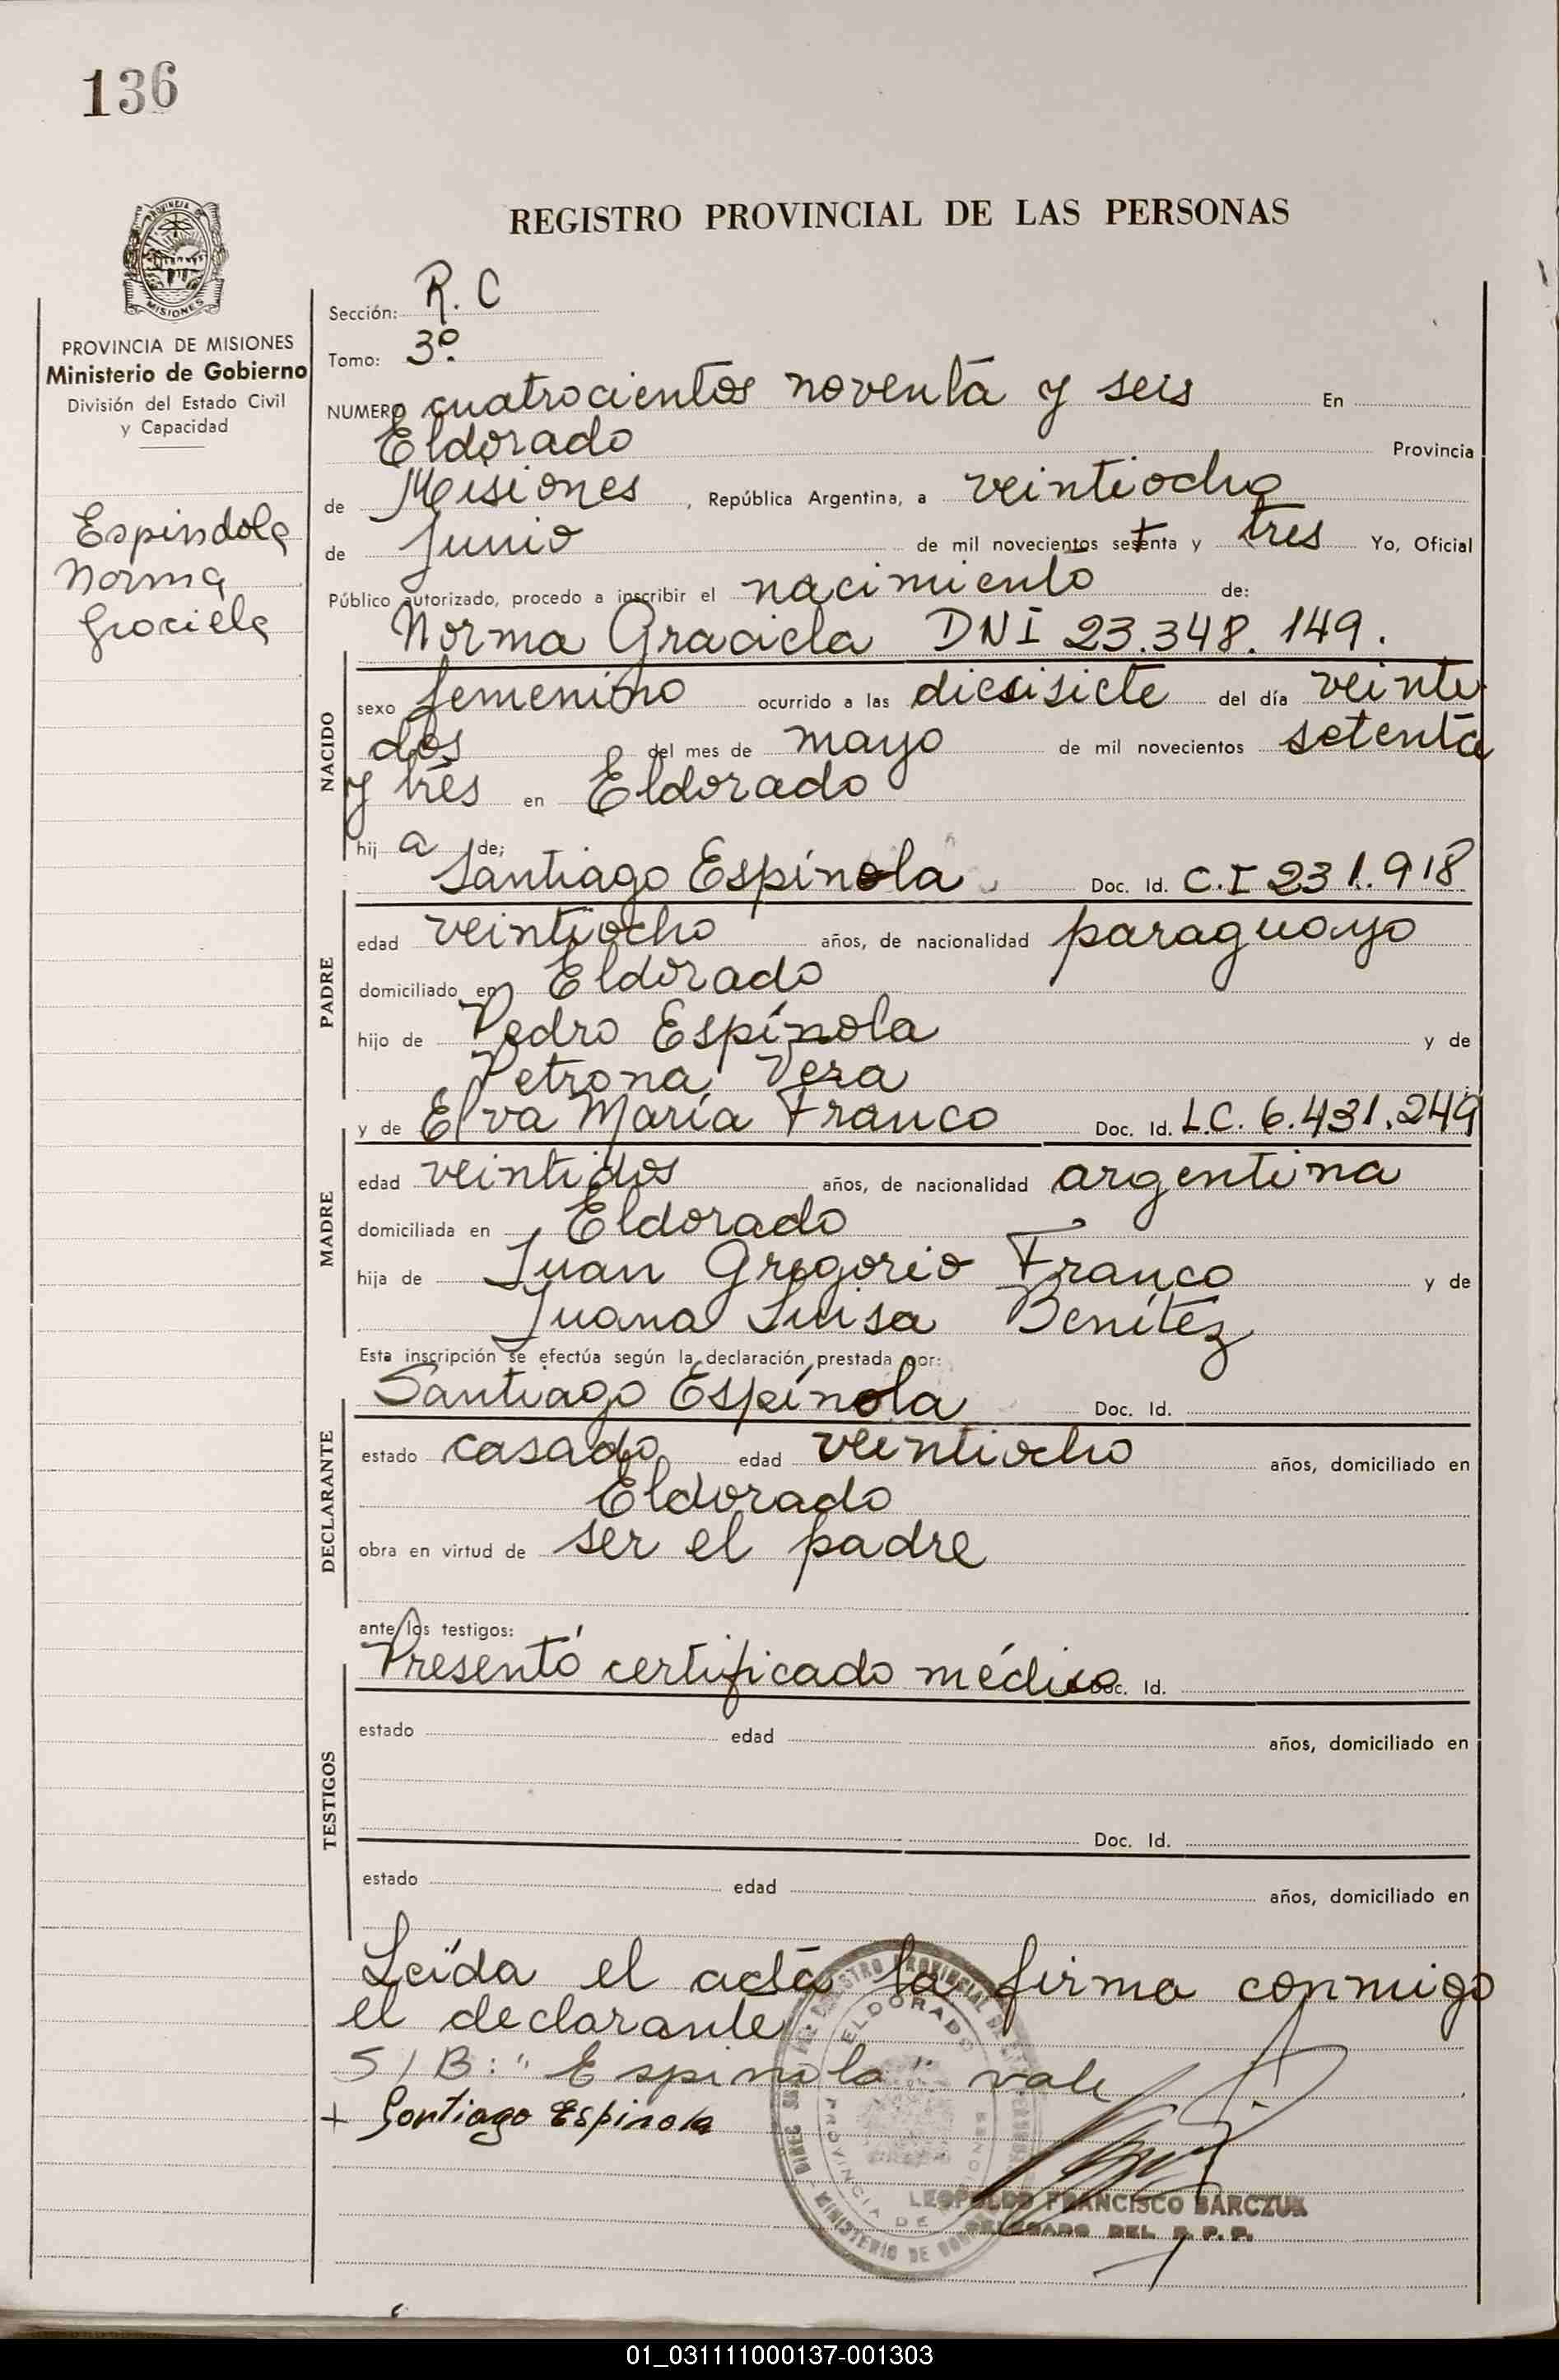 136
REGISTRO PROVINCIAL DE LAS PERSONAS
MISIONES
PROVINCIA DE MISIONES
Ministerio de Gobierno
División del Estado Civil
y Capacidad
Espindola
Norma
Graciela
Sección: R. C
Tomo: 3º.
NUMERO cuatrocientos noventa y seis En
Eldorado Provincia
de Misiones, República Argentina, a veintiocho
de Junio de mil novecientos setenta y tres Yo, Oficial
Público autorizado, procedo a inscribir el nacimiento de:
Norma Graciela DNI 23.348.149.
NACIDO
sexo femenino ocurrido a las diecisiete del día veinti
dos del mes de mayo de mil novecientos setenta
y trés en Eldorado
hij a de;
Santiago Espínola Doc. Id. C.I 231.918
PADRE
edad veintiocho años, de nacionalidad paraguayo
domiciliado en Eldorado
hijo de Pedro Espínola y de
Petrona Vera
y de Elva María Franco Doc. Id. L.C. 6.431.249
MADRE
edad veintidos años, de nacionalidad argentina
domiciliada en Eldorado
hija de Juan Gregorio Franco y de
Juana Luisa Benítez
Esta inscripción se efectúa según la declaración prestada por:
Santiago Espínola Doc. Id.
DECLARANTE
estado casado edad veintiocho años, domiciliado en
Eldorado
obra en virtud de ser el padre
ante los testigos:
Presentó certificado médico Doc. Id.
TESTIGOS
estado edad años, domiciliado en
Doc. Id.
estado edad años, domiciliado en
Leída el acta la firma conmigo
el declarante
S/B: "Espinola" vale
+ Santiago Espinola
ELDORADO
PROVINCIA DE MISIONES
LEOPOLDO FRANCISCO BARCZUK
DELEGADO DEL R. P. P.
01_031111000137-001303